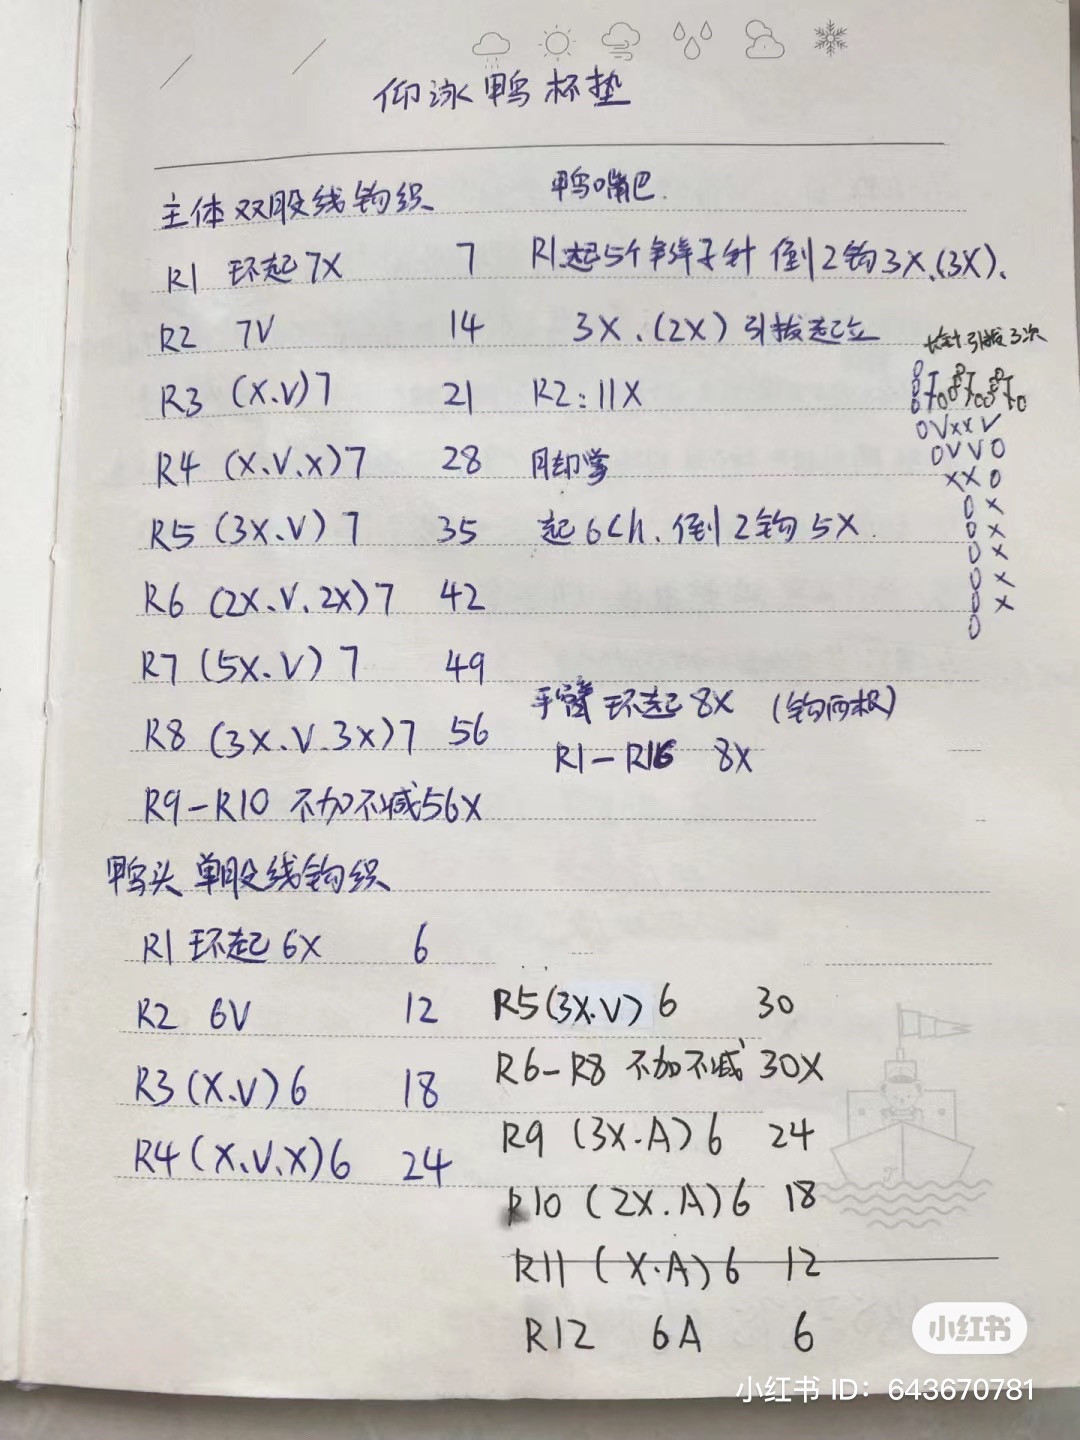 仰泳鸭杯垫
主体 双股线钩织
R1 环起7X 7
R2 7V 14
R3 (X.V)7 21
R4 (X.V.X)7 28
R5 (3X.V)7 35
R6 (2X.V.2X)7 42
R7 (5X.V)7 49
R8 (3X.V.3X)7 56
R9-R10 不加不减56X
鸭嘴巴.
R1起5个辫子针 倒2钩3X.(3X).
3X.(2X)引拔起立
R2:11X
脚掌
起6ch.倒2钩5X.
长针引拔3次
0VXXV
0VV0
XX0
0X
0X
0X
0X
0X
0
手臂 环起8X (钩两根)
R1-R16 8X
鸭头 单股线钩织
R1 环起6X 6
R2 6V 12
R3(X.V)6 18
R4(X.V.X)6 24
R5(3X.V)6 30
R6-R8 不加不减 30X
R9 (3X.A)6 24
R10 (2X.A)6 18
R11 (X.A)6 12
R12 6A 6
小红书
小红书 ID: 643670781